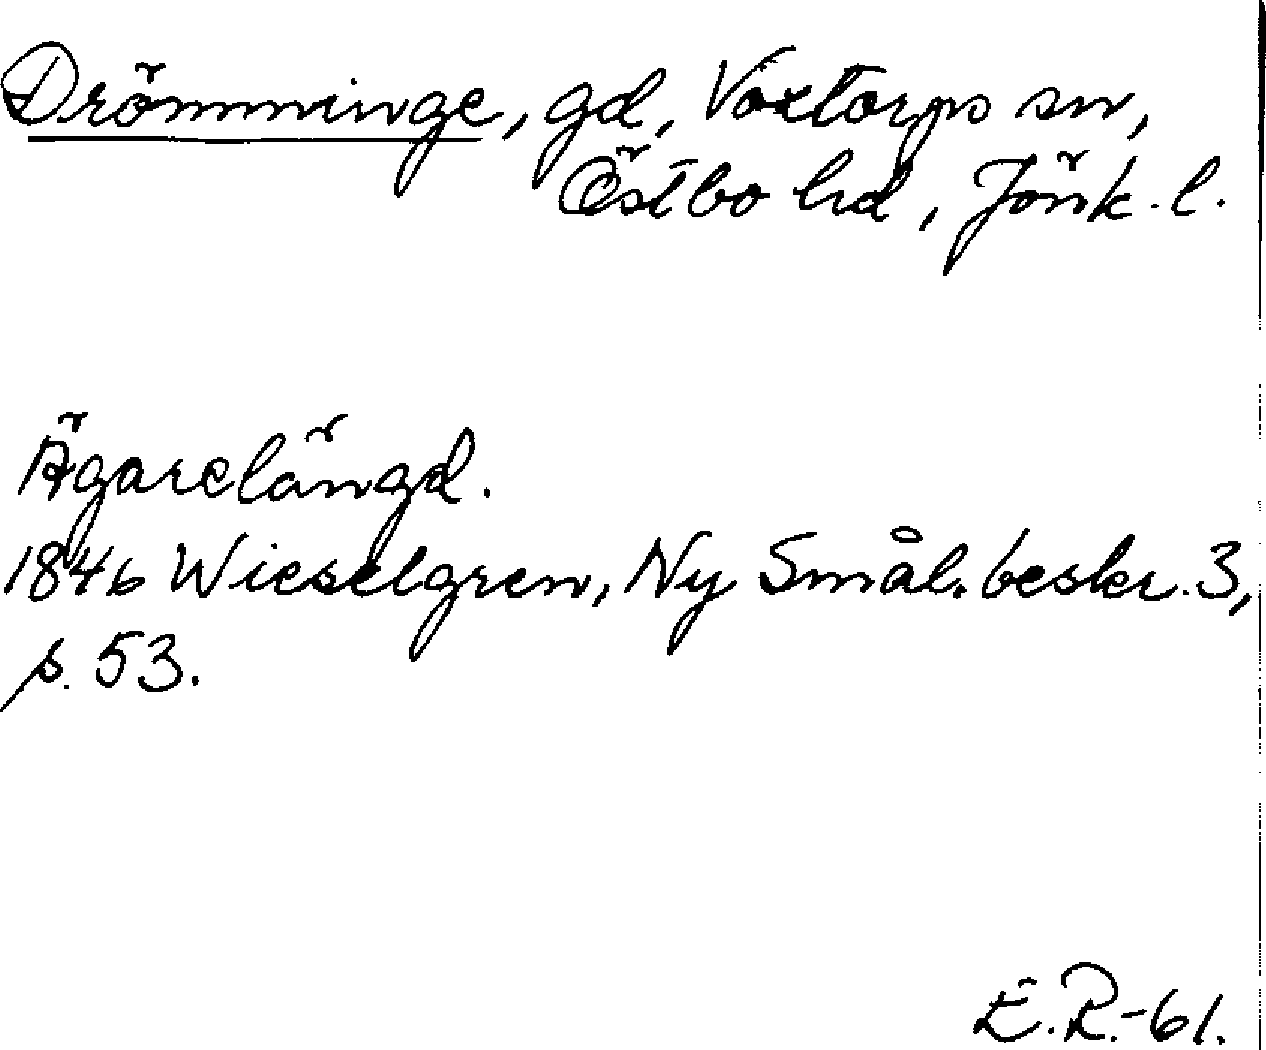 Drömminge, gd, Voxtorps sn,
Östbo hd, Jönk. l.
Ägarelängd.
1846 Wieselgren, Ny Smål. beskr. 3,
s. 53.
E.R.-61.